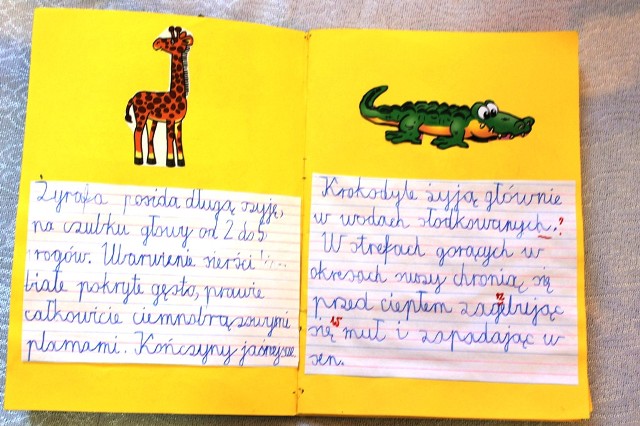 Żyrafa posida długą szyję,
na czubku głowy od 2 do 5
rogów. Ubarwienie sierści
białe pokryte gęsto, prawie
całkowicie ciemnobrązowymi
plamami. Kończyny jaśniejsze.
Krokodyle żyją głównie
w wodach słodkowanych.?
W strefach gorących w
okresach suszy chronią się
przed ciepłem zagebując
się muł i zapadając w
sen.